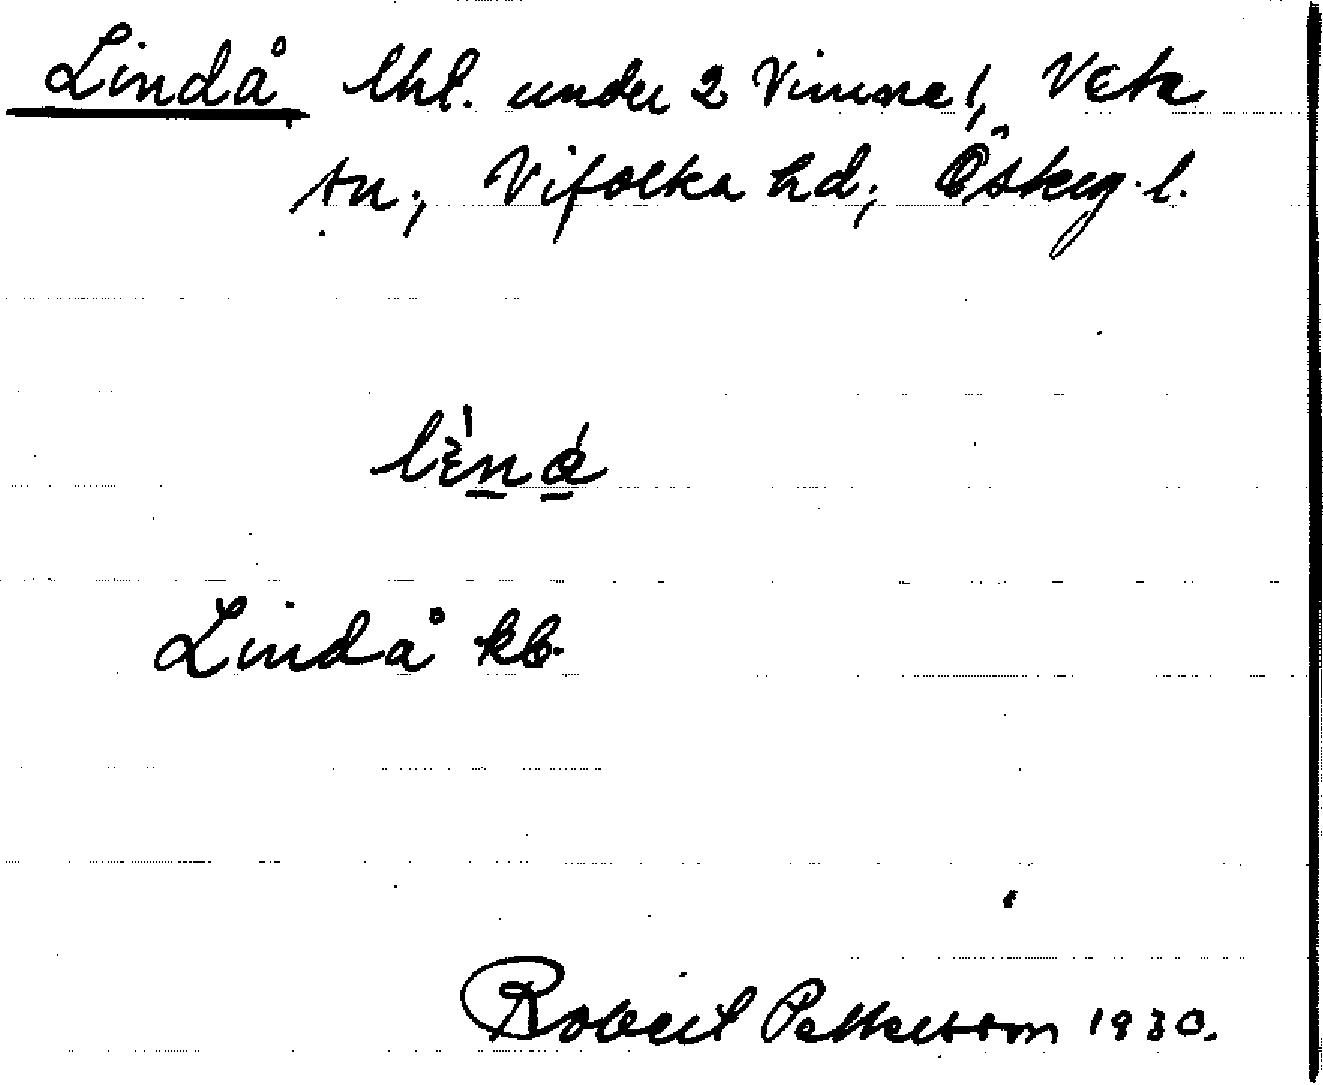 Lindå lht. under 2 Vimne!, Veta
sn., Vifolka hd., Österg. l.
Lindå kb.
Robert Pettersson 1930.